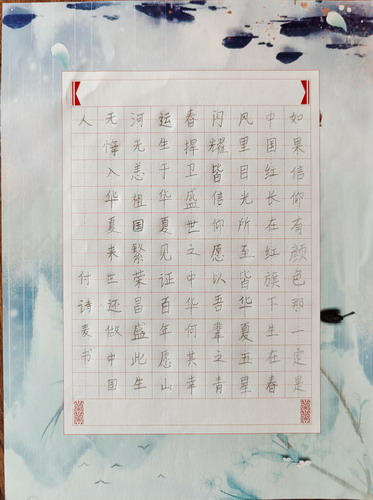 如果信仰有颜色那一定是
中国红长在红旗下生在春
风里目光所至皆华夏五星
闪耀皆信仰愿以吾辈之青
春捍卫盛世之中华何其幸
运生于华夏见证百年愿山
河无恙祖国繁荣昌盛此生
无悔入华夏来世还做中国
人 付诗麦书